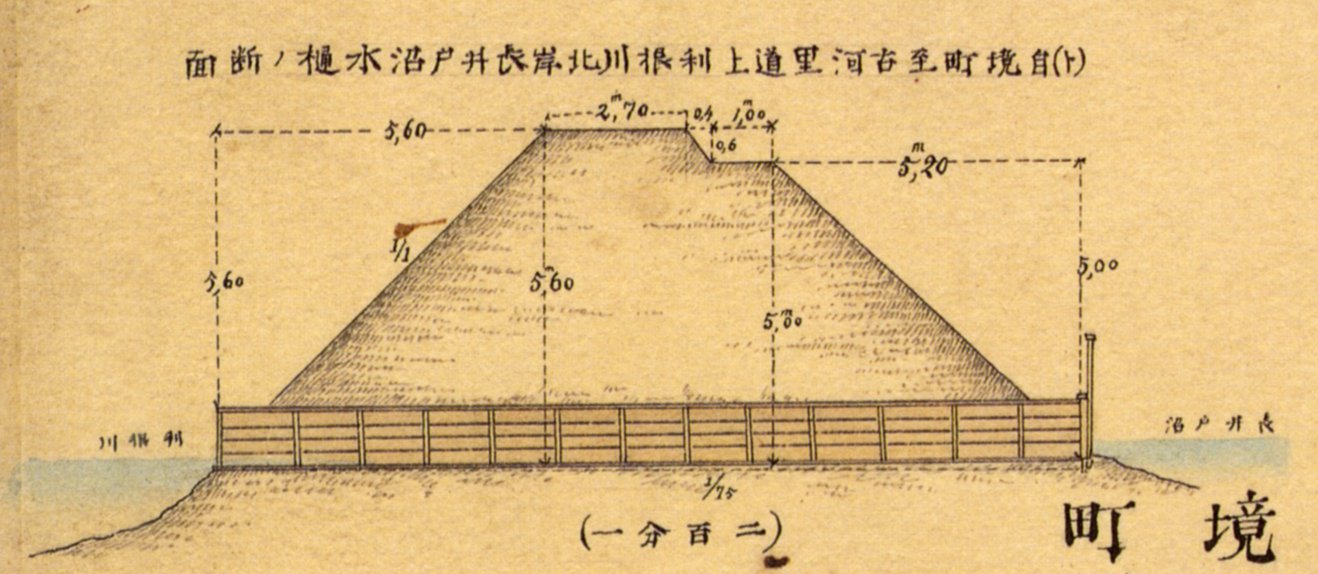 (ト)自境町至古河里道上利根川北岸長井戸沼水樋ノ断面
2,70m
0,4
1,00m
5,60
0,6
5,20m
1/1
5,60
5,60m
5,00m
5,00
利根川
長井戸沼
1/75
(二百分一)
境町